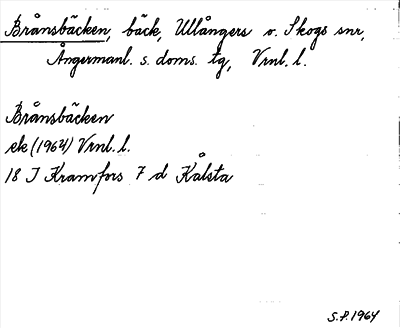 Brånsbäcken, bäck, Ullångers o. Skogs snr,
Ångermanl. s. doms. tg, Vrnl. l.
Brånsbäcken
ek (1964) Vrnl. l.
18 I Kramfors 7 d Kålsta
S.F. 1964